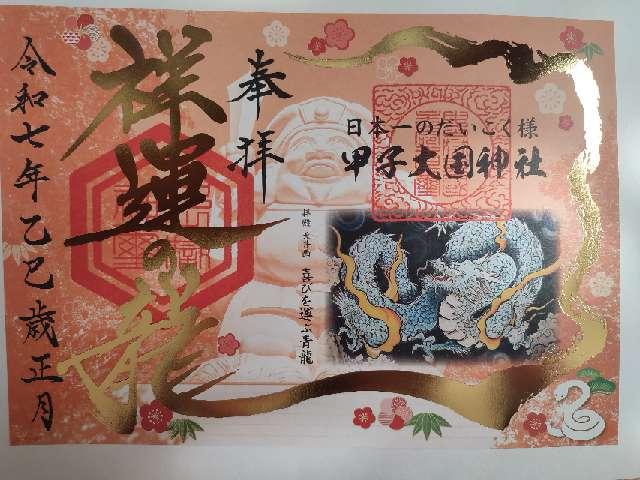 令和七年乙巳歳正月
祥運の龍
奉拝
日本一のだいこく様
甲子大国神社
拝殿 天井画 喜びを運ぶ青龍